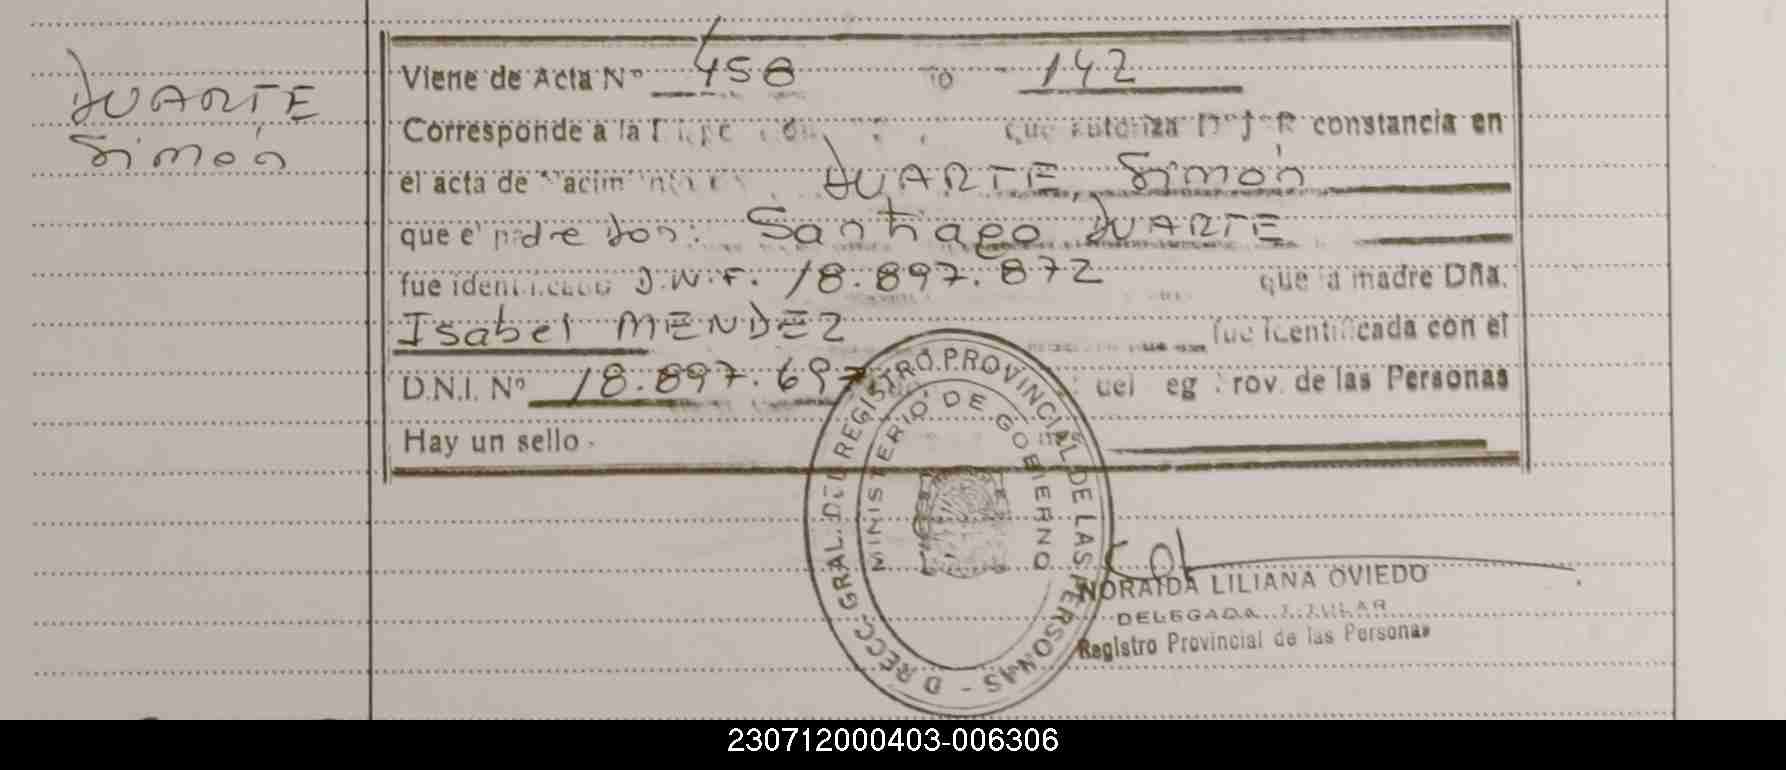 DUARTE
Simón
Viene de Acta Nº 458 142
Corresponde a la que autoriza constancia en
el acta de DUARTE, Simón
que el padre Don: Santiago DUARTE
fue identificado D.N.I. 18.897.872 que la madre Dña.
Isabel MENDEZ fue identificada con el
D.N.I. Nº 18.897.697 del Reg. Prov. de las Personas
Hay un sello.
DIRECC. GRAL. DEL REGISTRO PROVINCIAL DE LAS PERSONAS
MINISTERIO DE GOBIERNO
NORAIDA LILIANA OVIEDO
DELEGADA TITULAR
Registro Provincial de las Personas
230712000403-006306